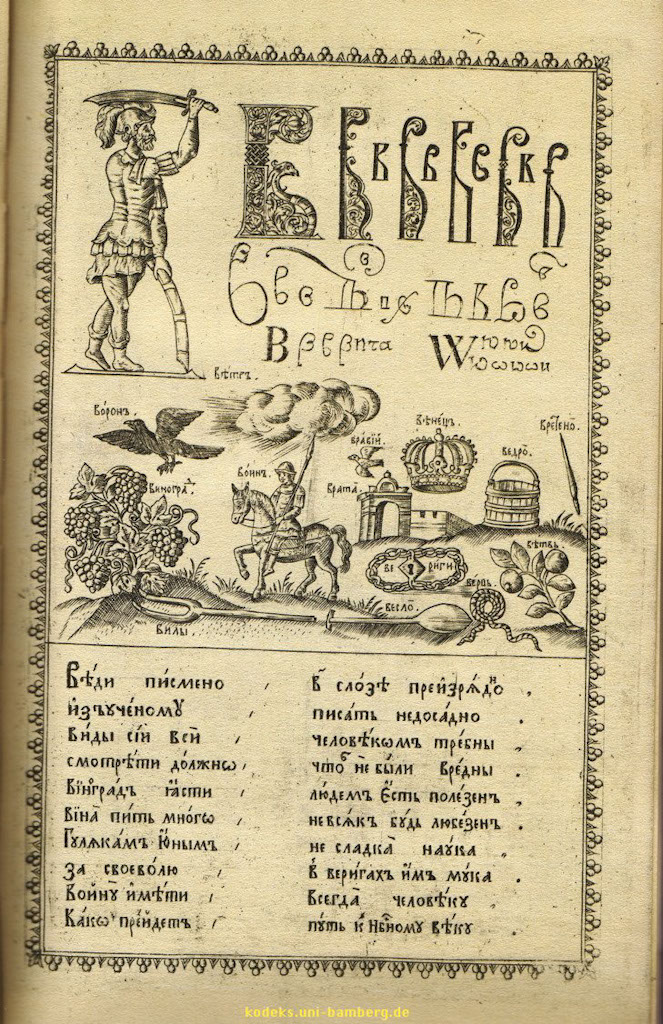 В В В В В В
В в в
В β β β пита W ю ю и
ю ѡ ѡ ѡ и
вѣтръ.
ворон̾.
вѣнецъ.
вретено̀.
врабїй.
ведро̀.
воин̾.
виногра҇д.
врата.
вѣтвь.
ве риги
вервь.
весло̀.
вилы.
Вѣ́ди пи́смено , в̾ сло́зѣ преизрѧ́дно ,
и҆зъꙋче́номꙋ писа́ть недоса́дно .
Ви́ды сїѝ всѝ , человѣ́кѡмъ тре́бны ,
смотрѣ́ти до́лжнѡ , что̀ не бы́ли вре́дны .
Вїногра́дъ ꙗ҆́сти , лю́демъ є҆́сть поле́зенъ ,
Вїна̀ пи́ть мно́гѡ , невсѧ́къ бꙋ́дь любе́зенъ .
Гꙋлѧ́камъ ю҆́нымъ , не сладка̀ наꙋ́ка ,
за своево́лю , в̾ вери́гахъ и҆́мъ мꙋ́ка .
Войнꙋ̀ и҆мѣ́ти , всегда̀ человѣ́кꙋ ,
Ка́кѡ пре́йдетъ , пꙋ́ть к̾ нб҃номꙋ вѣ́кꙋ .
kodeks.uni-bamberg.de